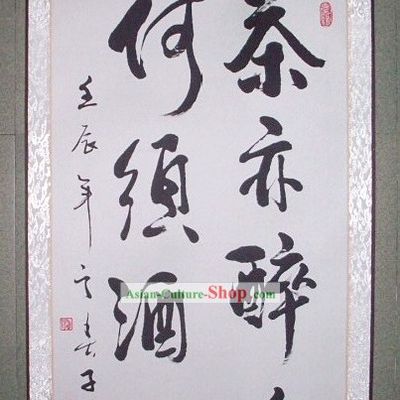 茶亦醉
何須酒
壬辰年
Asian-Culture-Shop.com